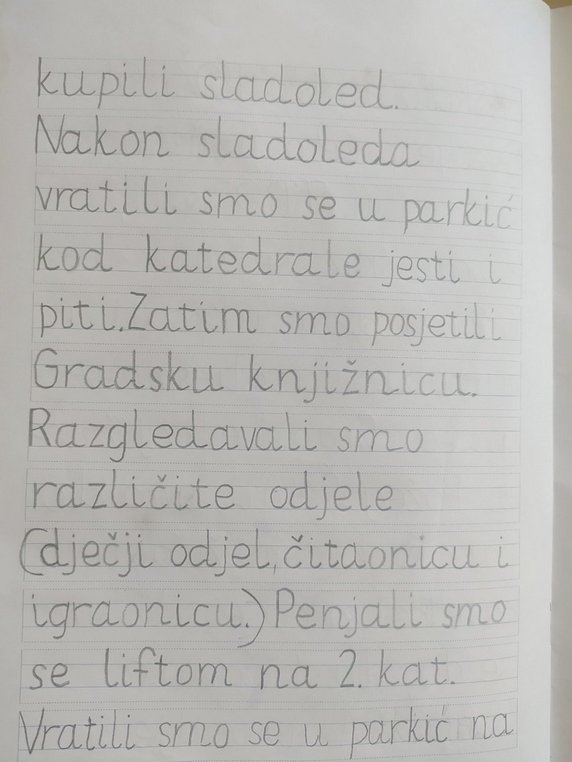 kupili sladoled.
Nakon sladoleda
vratili smo se u parkić
kod katedrale jesti i
piti. Zatim smo posjetili
Gradsku knjižnicu.
Razgledavali smo
različite odjele
(dječji odjel, čitaonicu i
igraonicu.) Penjali smo
se liftom na 2. kat.
Vratili smo se u parkić na